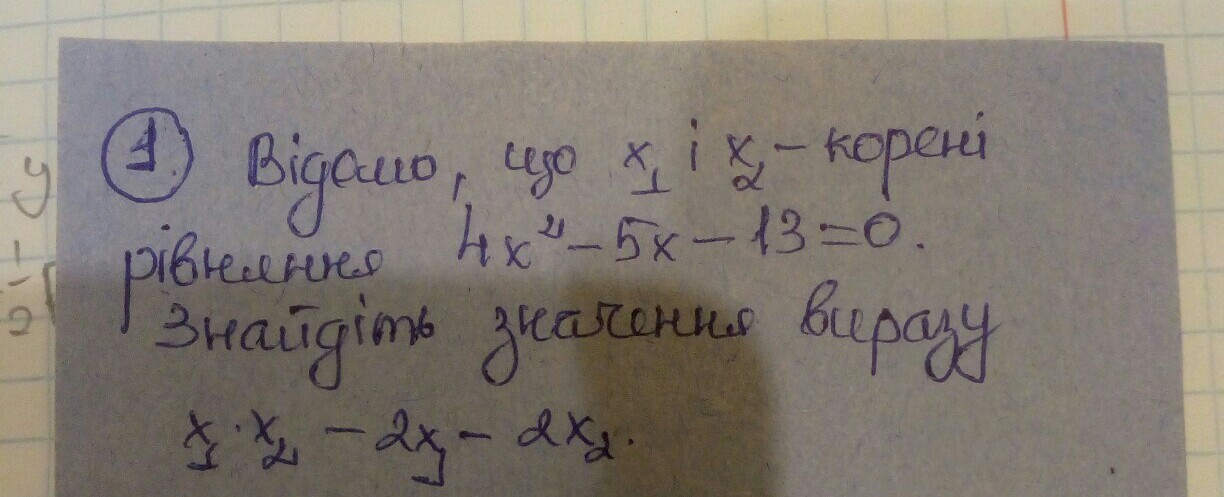 1. Відомо, що x₁ і x₂ – корені
рівняння 4x² – 5x – 13 = 0.
Знайдіть значення виразу
x₁ · x₂ – 2x₁ – 2x₂.